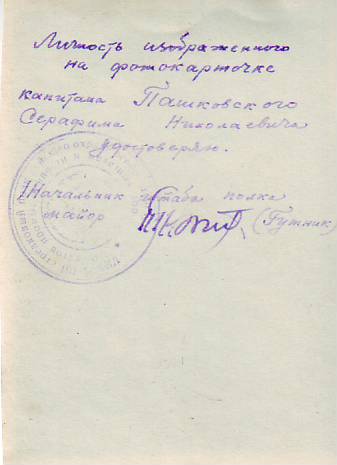 Личность изображенного
на фотокарточке
капитана Пашковского
Серафима Николаевича
удостоверяю.
Начальник штаба полка
майор
(Гутник)